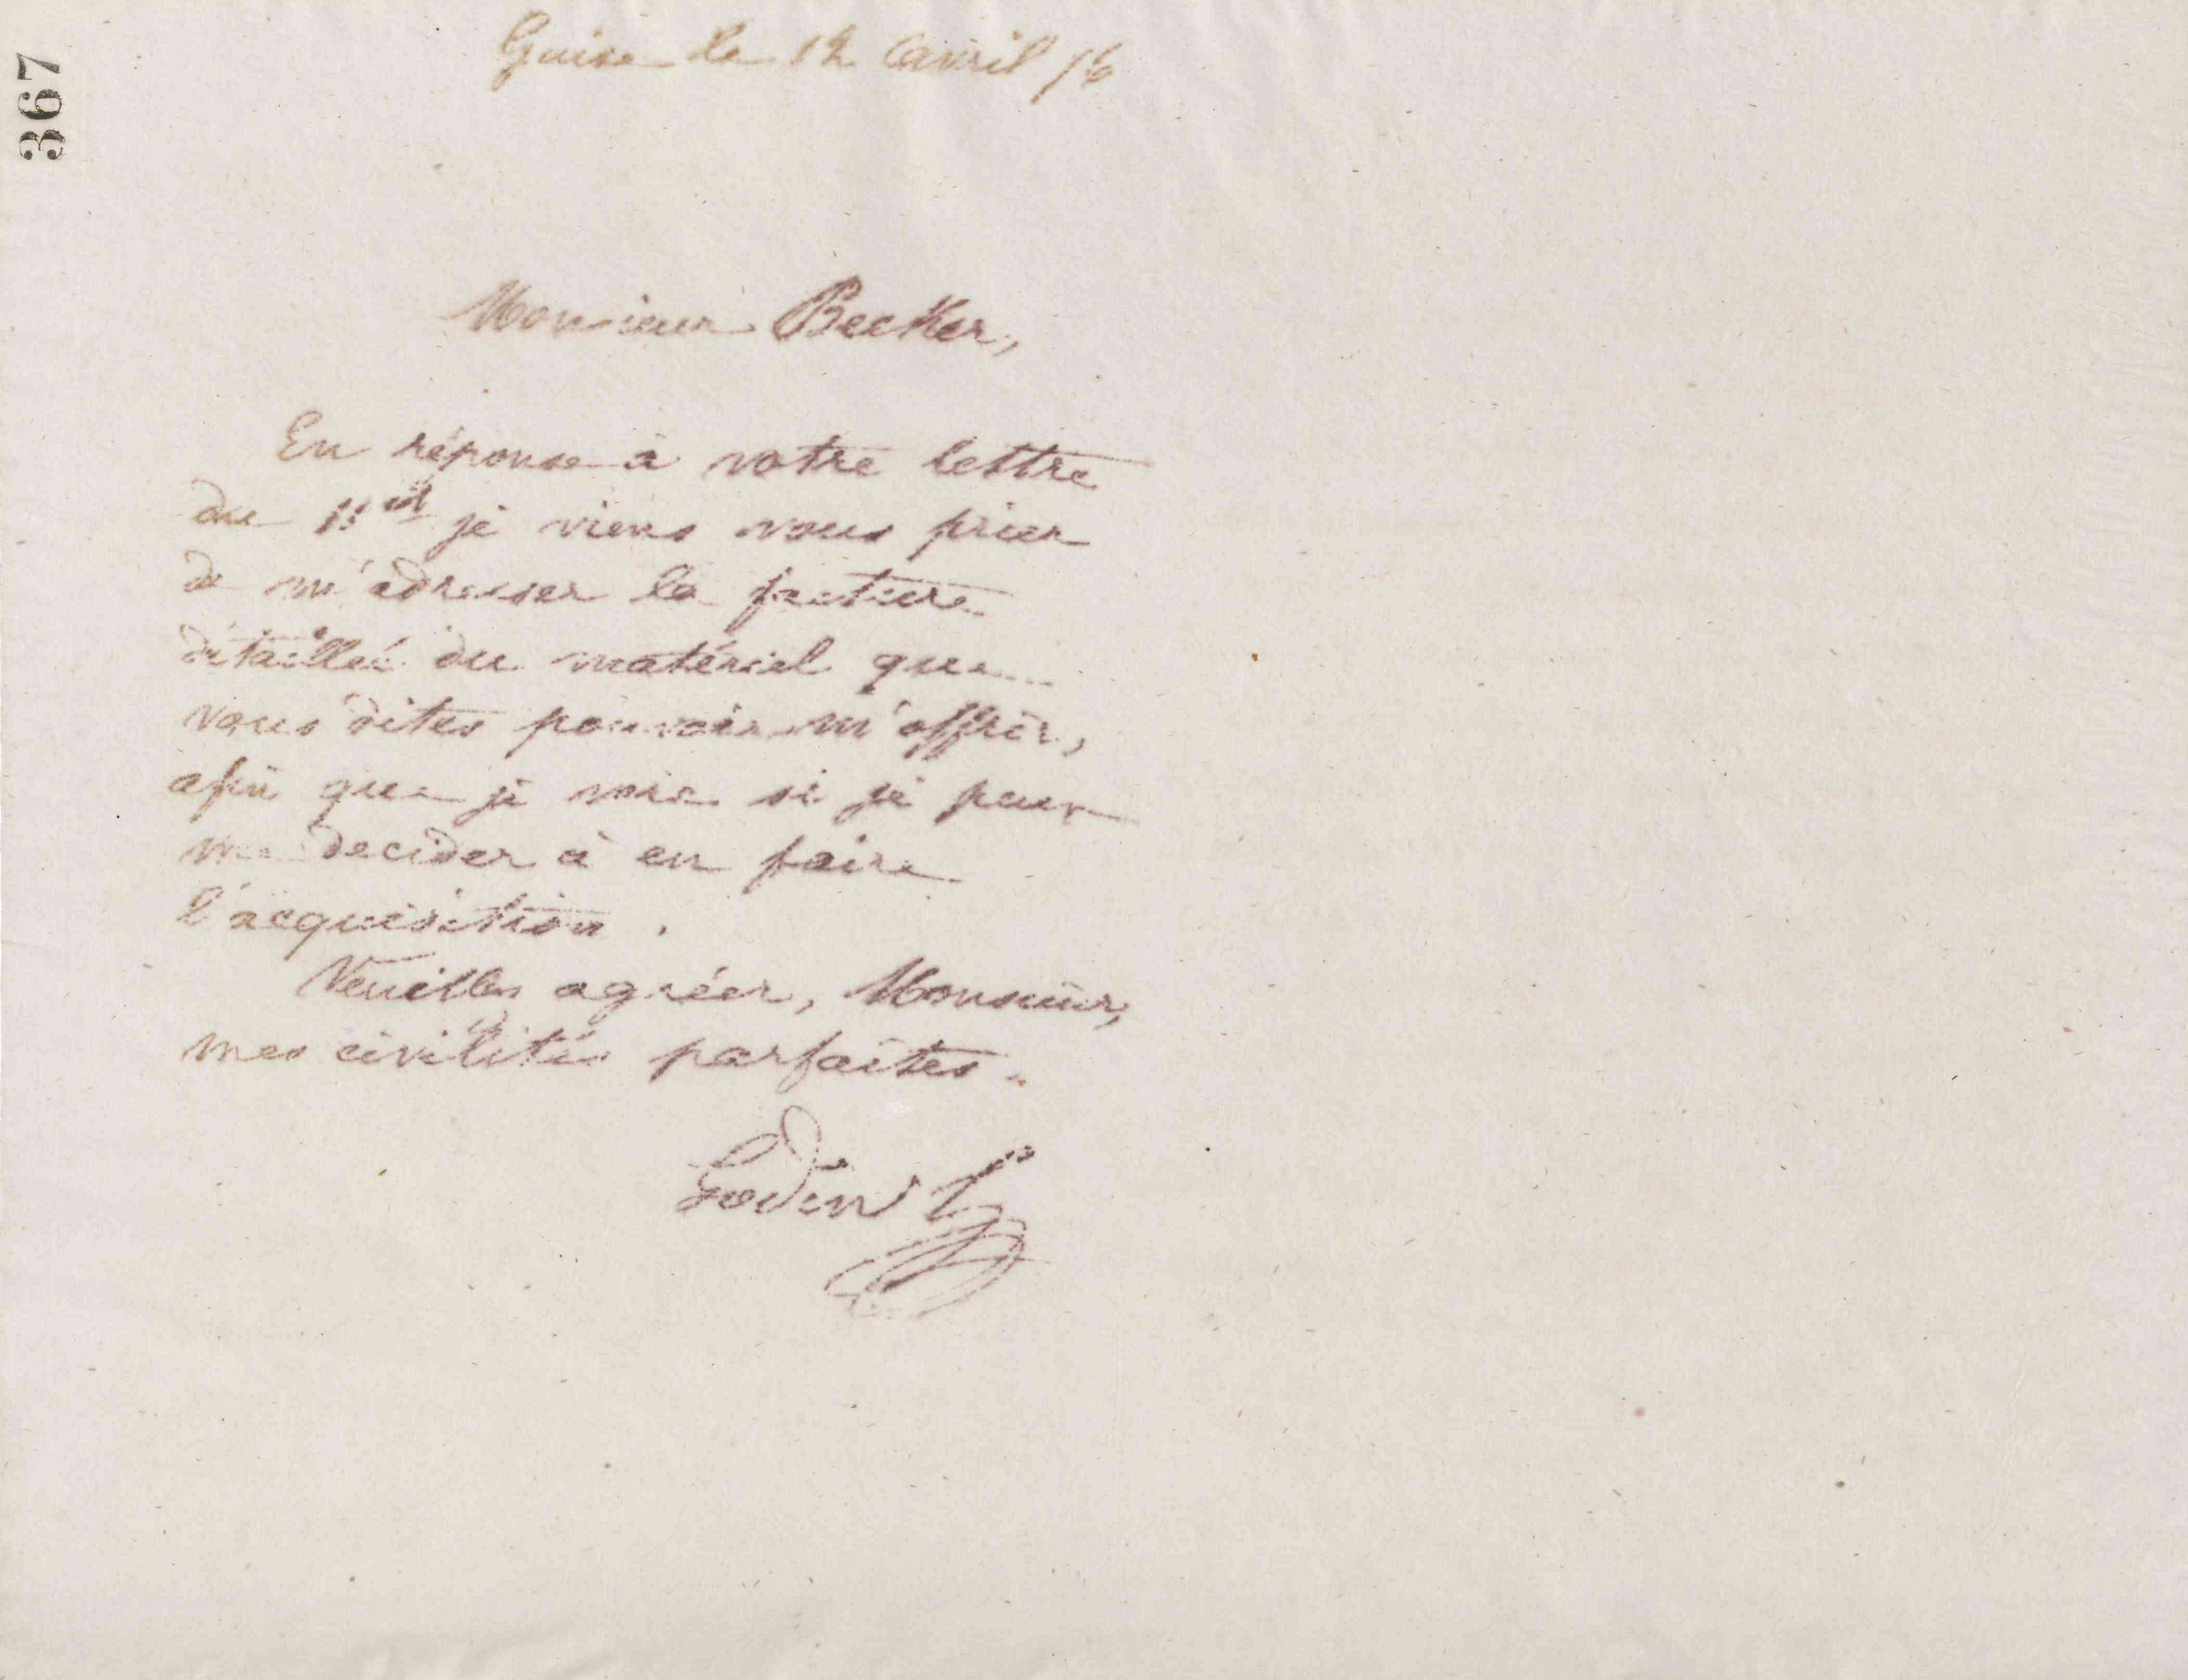 367
Guise le 12 avril 76
Monsieur Becker,
En réponse à votre lettre
du 11 ct je viens vous prier
de m'adresser la facture
détaillée du matériel que
vous dites pouvoir m'offrir,
afin que je voie si je peux
me decider à en faire
l'acquisition.
Veuillez agréer, Monsieur,
mes civilités parfaites.
Godin